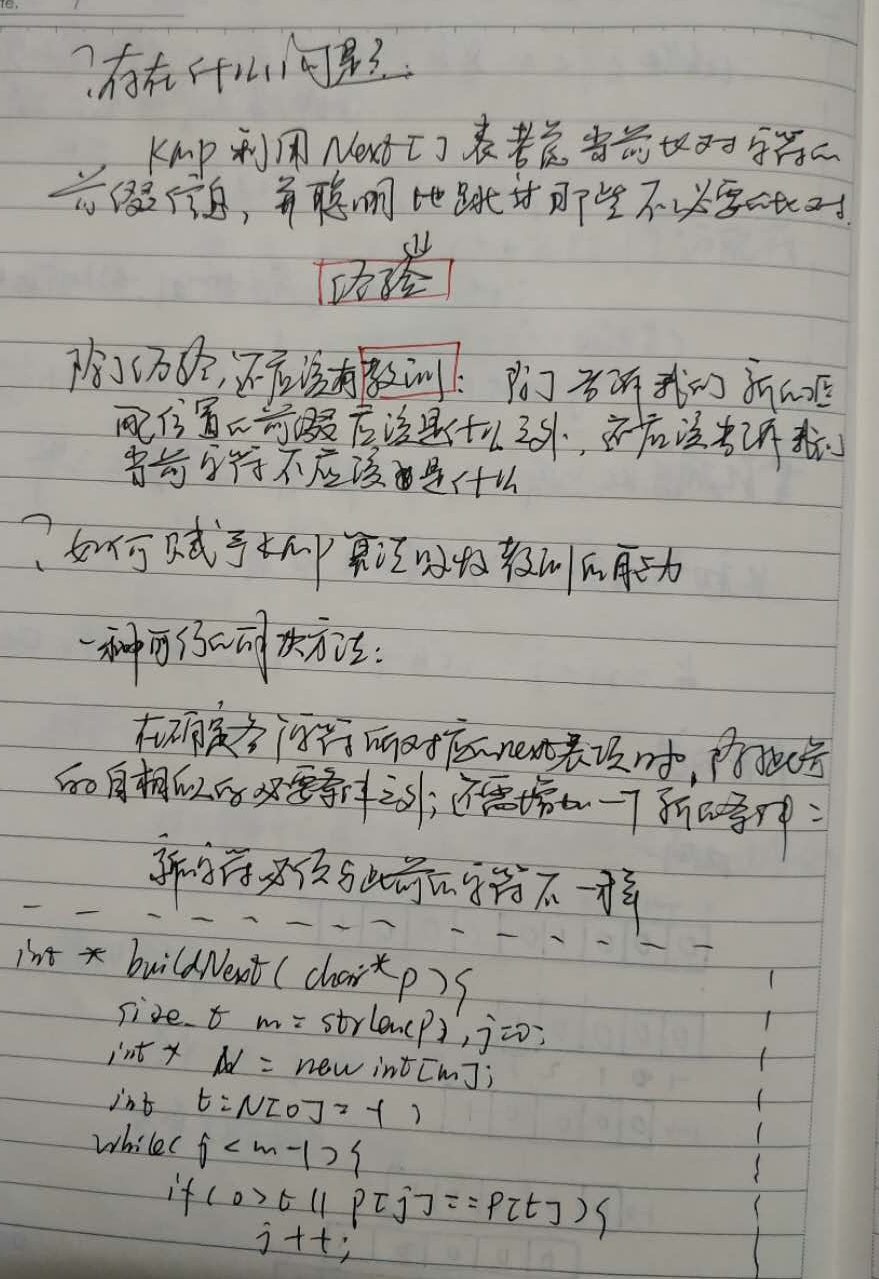 ?存在什么问题:
Kmp 利用 Next[] 表考虑当前比对字符的
前缀信息,并聪明地跳过那些不必要的比对.
⇓
经验
除了经验,还应该有教训: 除了告诉我们新的匹
配位置的前缀应该是什么之外,还应该告诉我们
当前字符不应该是什么
? 如何赋予kmp算法吸收教训的能力
一种可行的解决方法:
在确定各字符所对应的next表项时,除此前
的自相似的必要条件之外;还需增加一个新的条件:
新字符必须与此前的字符不一样
int * buildNext( char* p ){
size_t m = strlen(p), j=0;
int * N = new int[m];
int t=N[0]=-1;
while( j < m-1 ){
if( 0>t || p[j]==p[t] ){
j++;